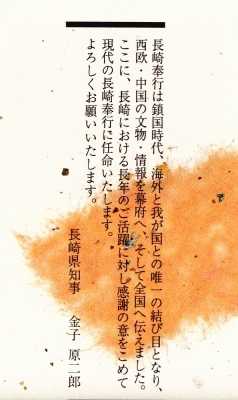 長崎奉行は鎖国時代、海外と我が国との唯一の結び目となり、
西欧・中国の文物・情報を幕府へ、そして全国へ伝えました。
ここに、長崎における長年のご活躍に対し感謝の意をこめて
現代の長崎奉行に任命いたします。
よろしくお願いいたします。
長崎県知事　金子　原二郎